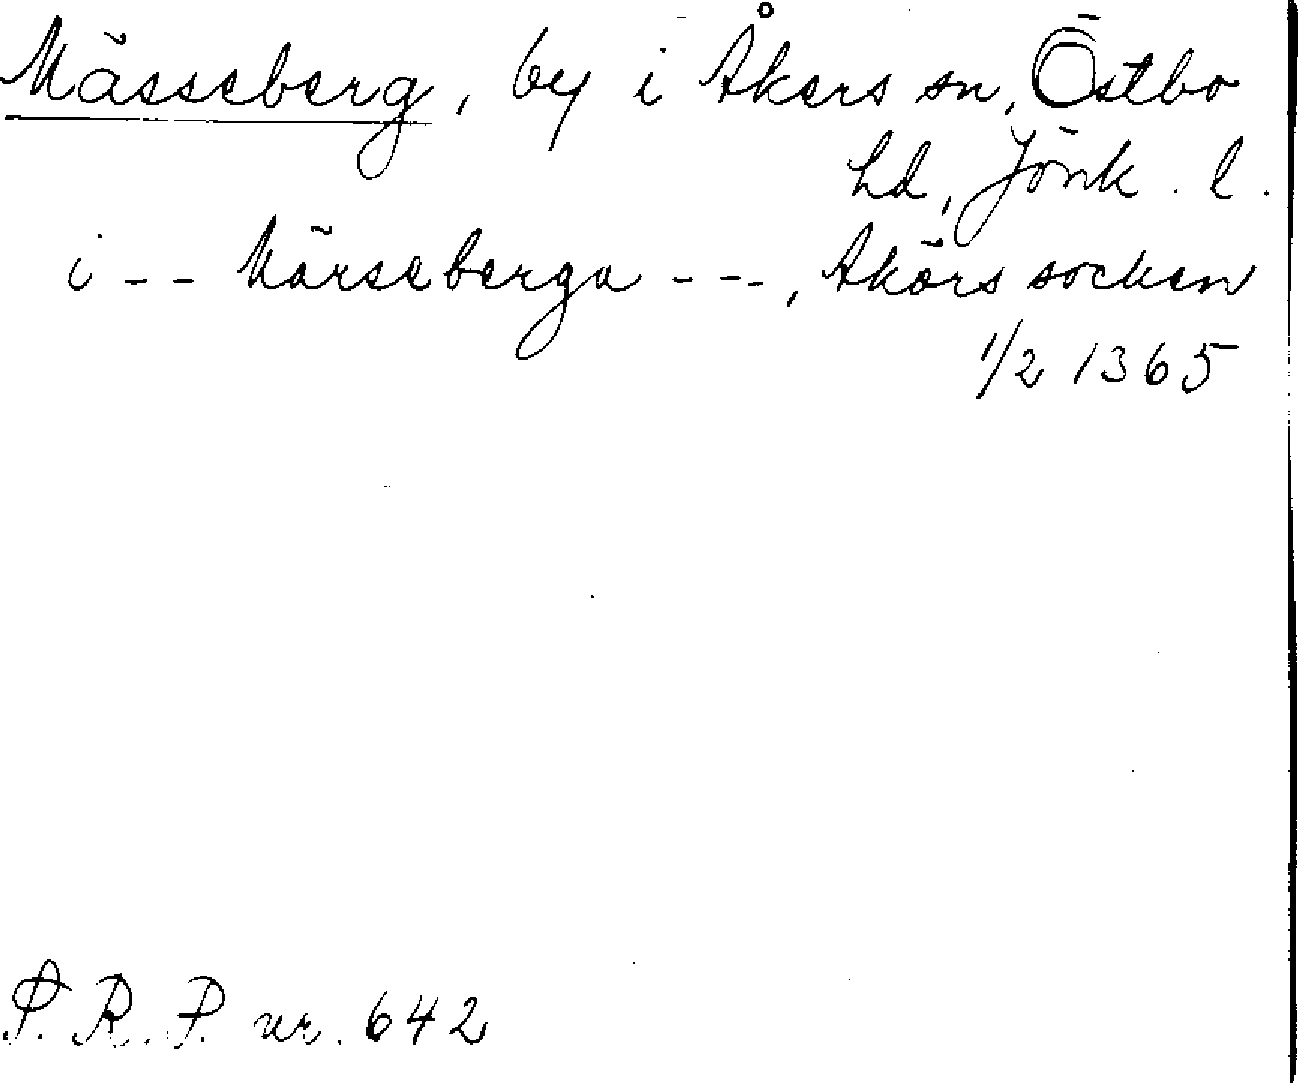 Mässeberg, by i Åkers sn, Östbo
hd, Jönk. l.
i -- Märseberga ---, Akärs socken
1/2 1365
S. R. P. nr. 642